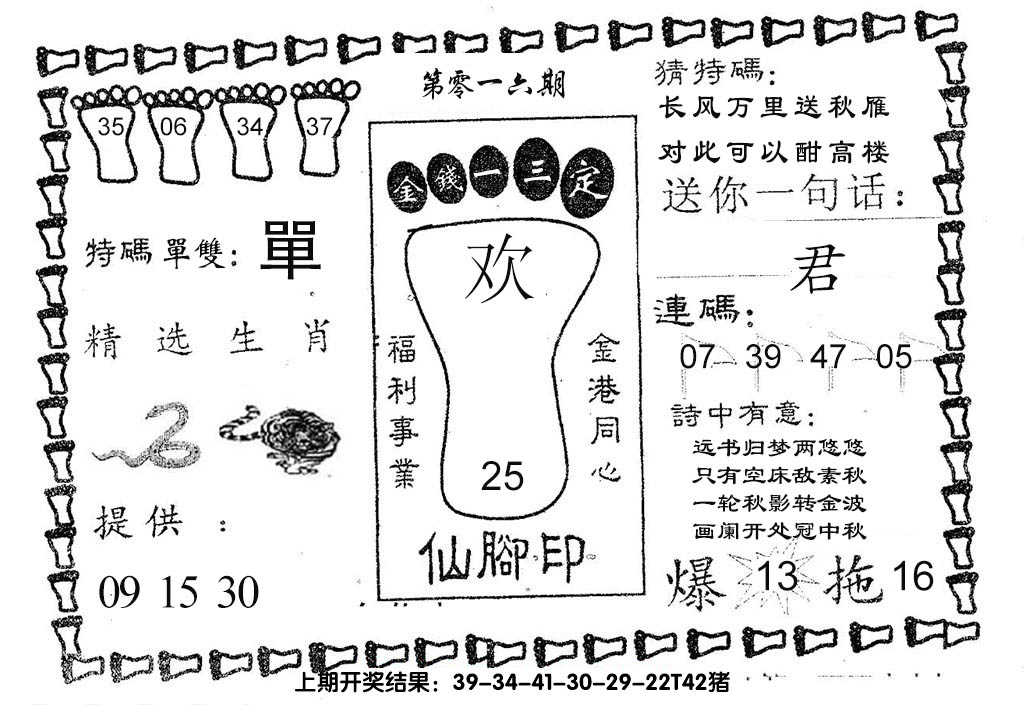 第零一六期
35 06 34 37
特碼單雙: 單
精选生肖
提供:
09 15 30
金錢一三定
欢
福利事業
金港同心
25
仙腳印
猜特碼:
长风万里送秋雁
对此可以酣高楼
送你一句话:
君
連碼:
07 39 47 05
詩中有意:
远书归梦两悠悠
只有空床敌素秋
一轮秋影转金波
画阑开处冠中秋
爆 13 拖 16
上期开奖结果：39-34-41-30-29-22T42猪